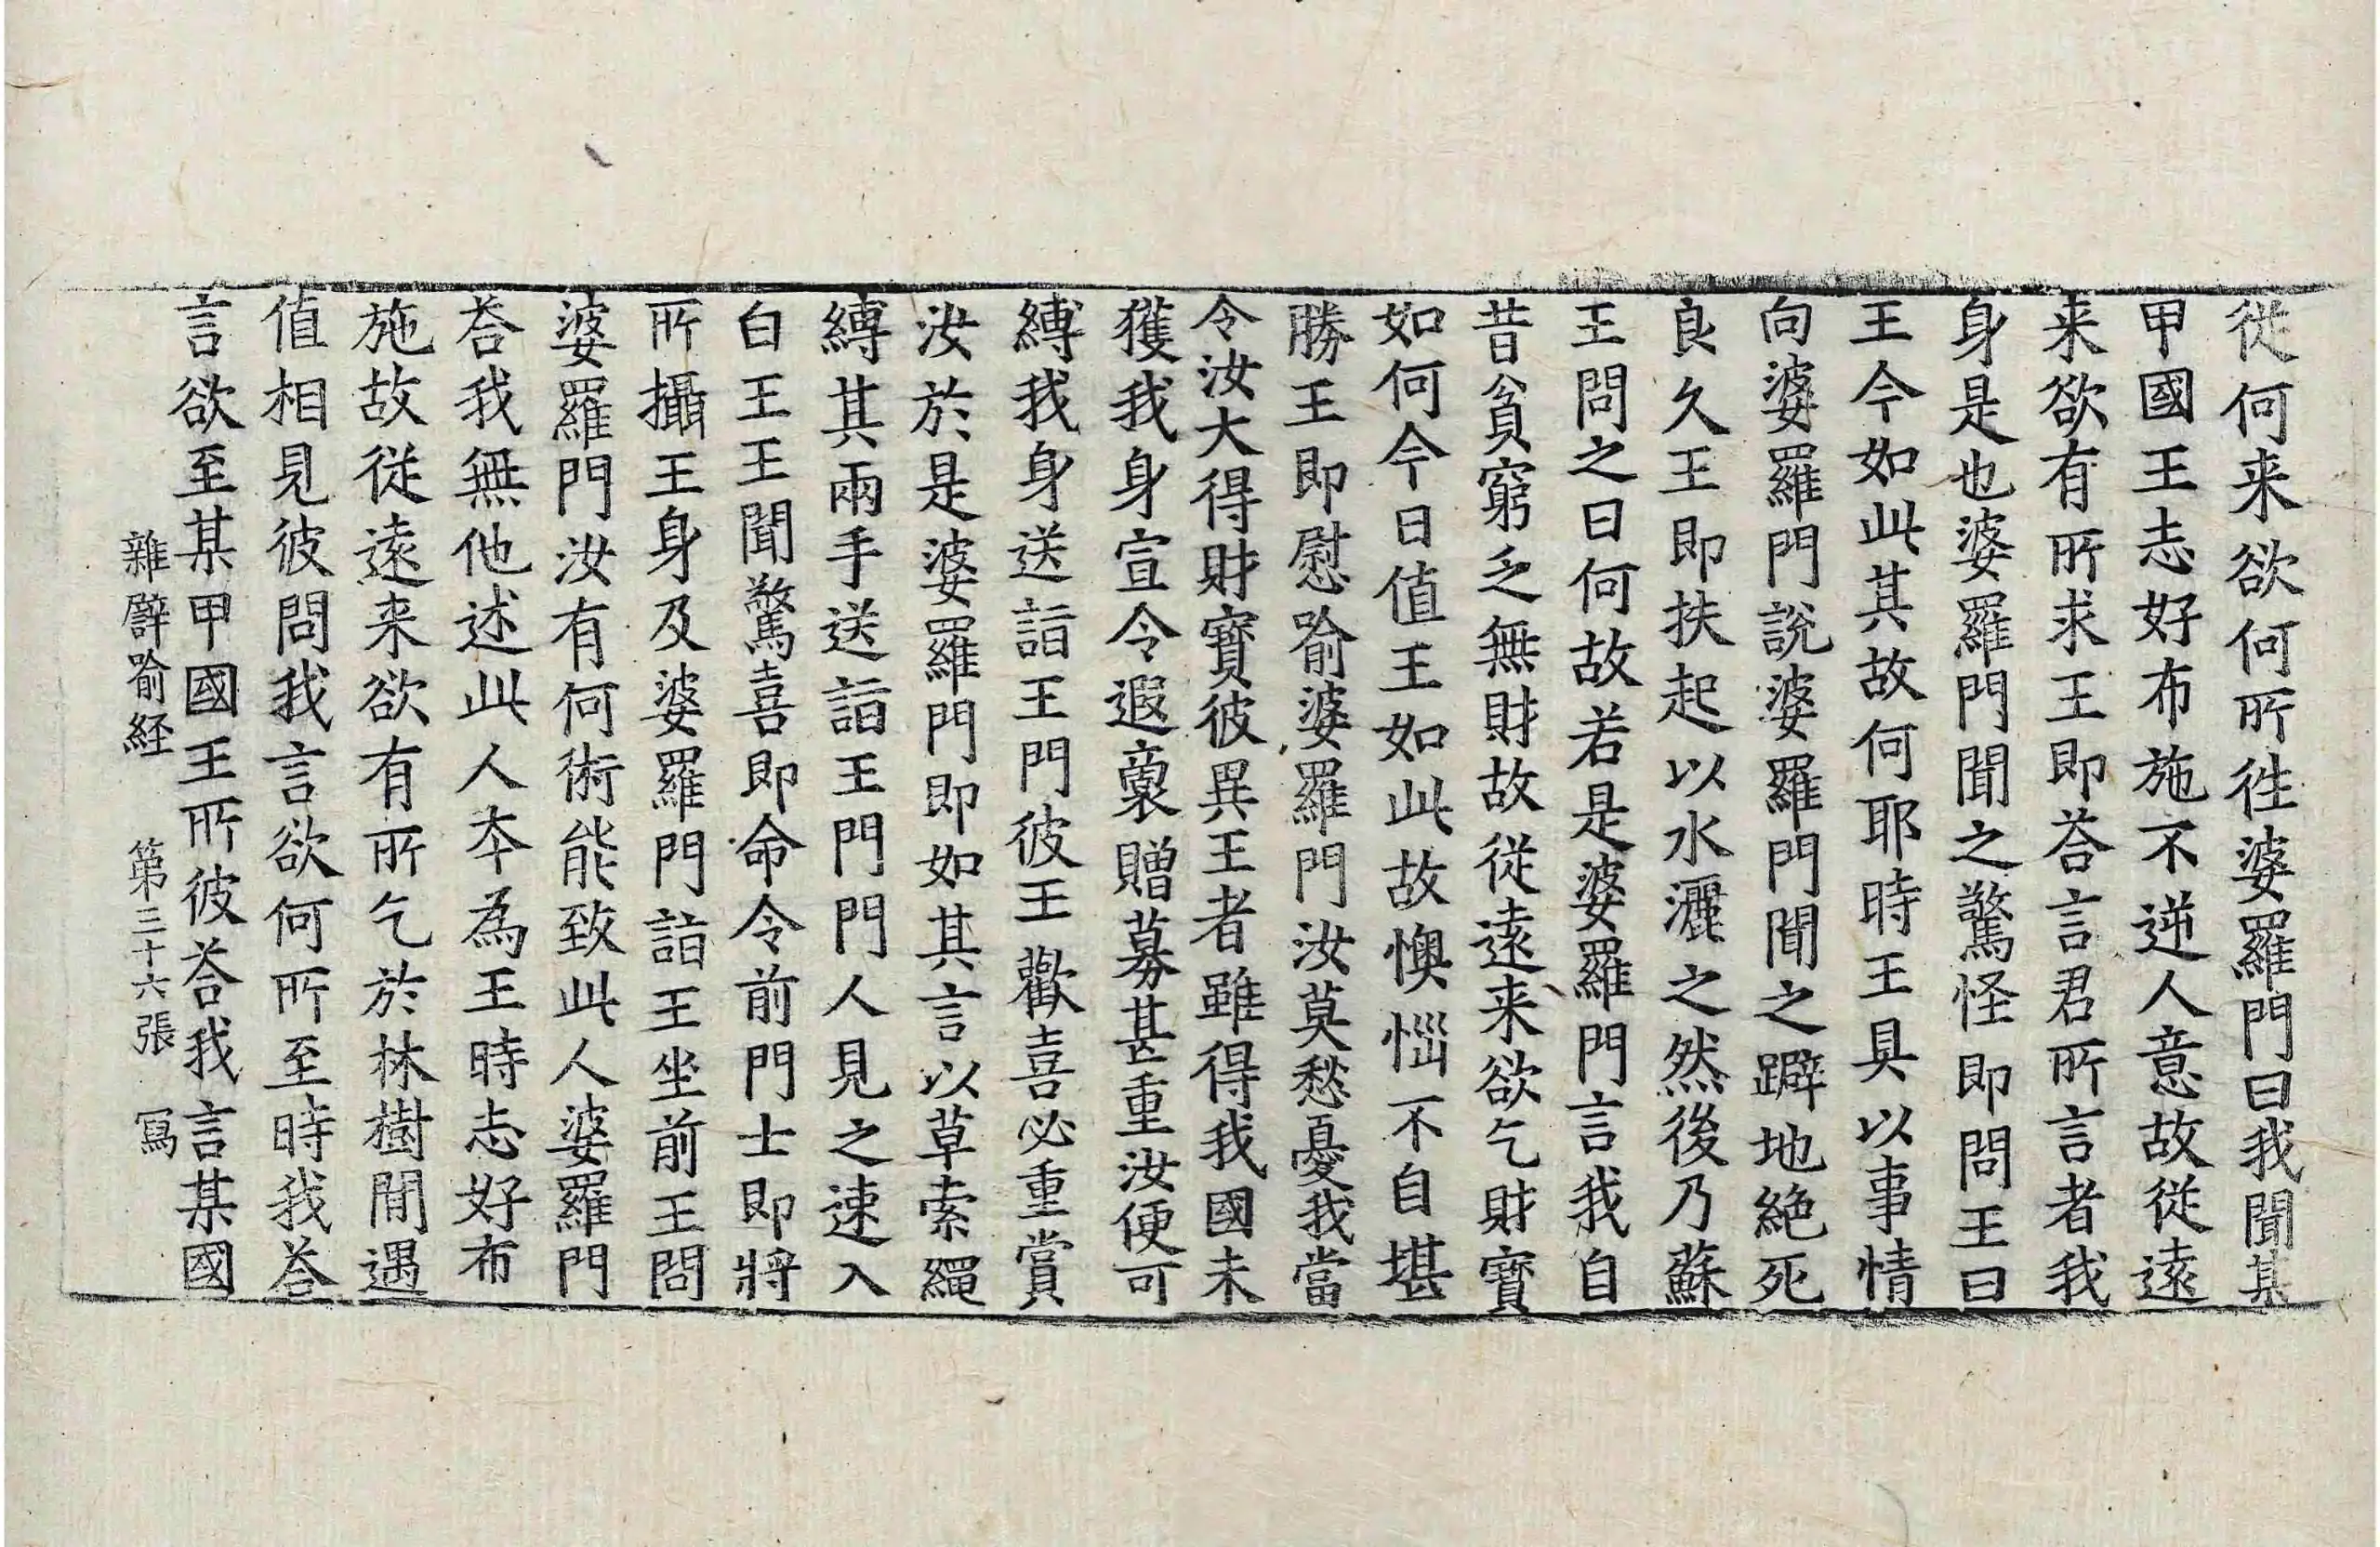 従何来欲何所徃婆羅門曰我聞某
甲國王志好布施不逆人意故従遠
来欲有所求王即荅言君所言者我
身是也婆羅門聞之驚怪即問王曰
王今如此其故何耶時王具以事情
向婆羅門說婆羅門聞之躃地絶死
良久王即扶起以水灑之然後乃蘇
王問之曰何故若是婆羅門言我自
昔貧窮乏無財故従遠来欲乞財寶
如何今日值王如此故懊惱不自堪
勝王即慰喻婆羅門汝莫愁憂我當
令汝大得財寶彼異王者雖得我國未
獲我身宣令遐裏贈募甚重汝便可
縛我身送詣王門彼王歡喜必重賞
汝於是婆羅門即如其言以草索繩
縛其兩手送詣王門門人見之速入
白王王聞驚喜即命令前門士即將
所攝王身及婆羅門詣王坐前王問
婆羅門汝有何術能致此人婆羅門
荅我無他述此人本為王時志好布
施故従遠来欲有所乞於林樹間遇
值相見彼問我言欲何所至時我荅
言欲至某甲國王所彼荅我言某國
雜譬喻経 第三十六張 寫